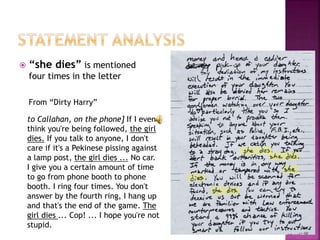 STATEMENT ANALYSIS
“she dies” is mentioned
four times in the letter
From “Dirty Harry”
to Callahan, on the phone] If I even
think you're being followed, the girl
dies. If you talk to anyone, I don't
care if it's a Pekinese pissing against
a lamp post, the girl dies ... No car.
I give you a certain amount of time
to go from phone booth to phone
booth. I ring four times. You don't
answer by the fourth ring, I hang up
and that's the end of the game. The
girl dies ... Cop! ... I hope you're not
stupid.
money and hence a earlier
pick-up of your daughter.
Any deviation of my instructions
will result in the immediate
execution of your daughter. You
will also be denied her remains
for proper burial. The two
gentlemen watching over your daughter
do not particularly like you so I
advise you not to provoke them.
Speaking to anyone about your
situation, such as Police, F.B.I., etc.,
will result in your daughter being
beheaded. If we catch you talking
to a stray dog, she dies. If you
alert bank authorities, she dies.
If the money is in any way
marked or tampered with, she
dies. You will be scanned for
electronic devices and if any are
found, she dies. You can try to
deceive us but be warned that
we are familiar with Law enforcement
countermeasures and tactics. You
stand a 99% chance of killing
your daughter if you try to out
smart us. Follow our instructions